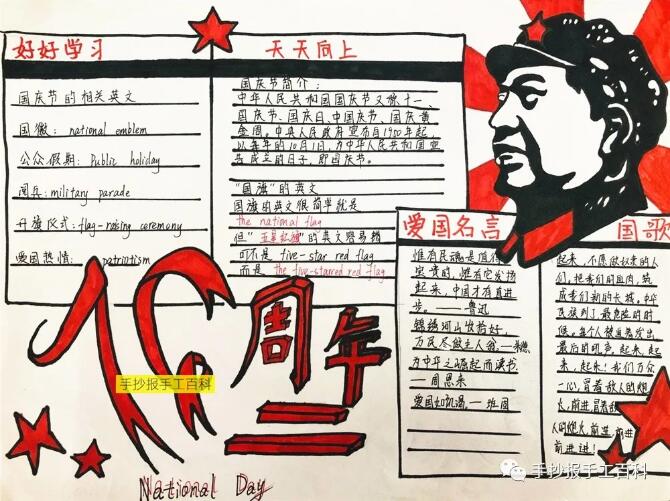 好好学习
天天向上
国庆节的相关英文
国徽: national emblem
公众假期: Public holiday
阅兵: military parade
升旗仪式: flag-raising ceremony
爱国热情: patriotism
国庆节简介:
中华人民共和国国庆节又称十一、
国庆节、国庆日、中国国庆节、国庆黄
金周。中央人民政府宣布自1950年起
以每年的10月1日,为中华人民共和国宣
告成立的日子,即国庆节。
"国旗"的英文
国旗的英文很简单就是
the national flag
但"五星红旗"的英文容易错
可不是 five-star red flag
而是 the five-starred red flag
爱国名言
惟有民魂是值得
宝贵的,惟有它发扬
起来,中国才有真进
步。——鲁迅
锦绣河山收拾好,
万民尽做主人翁。—朱德
为中华之崛起而读书
—周恩来
爱国如饥渴。—班固
国歌
起来,不愿做奴隶的人
们,把我们的血肉,筑
成我们新的长城。中华
民族到了最危险的时
候。每个人被迫着发出
最后的吼声。起来,起
来,起来!我们万众
一心,冒着敌人的炮
火,前进,冒着敌
人的炮火,前进,前进
前进,进!
76周年
手抄报手工百科
National Day
手抄报手工百科